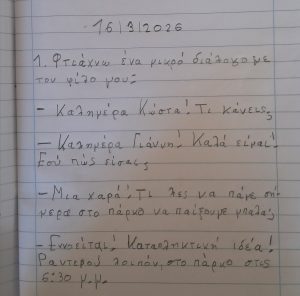 16/3/2026
1. Φτιάχνω ένα μικρό διάλογο με
τον φίλο μου:
– Καλημέρα Κώστα! Τι κάνεις;
– Καλημέρα Γιάννη! Καλά είμαι!
Εσύ πώς είσαι;
– Μια χαρά! Τι λες να πάμε σή-
μερα στο πάρκο να παίξουμε μπάλα;
– Εννοείται! Καταπληκτική ιδέα!
Ραντεβού λοιπόν, στο πάρκο στις
6:30 μ.μ.